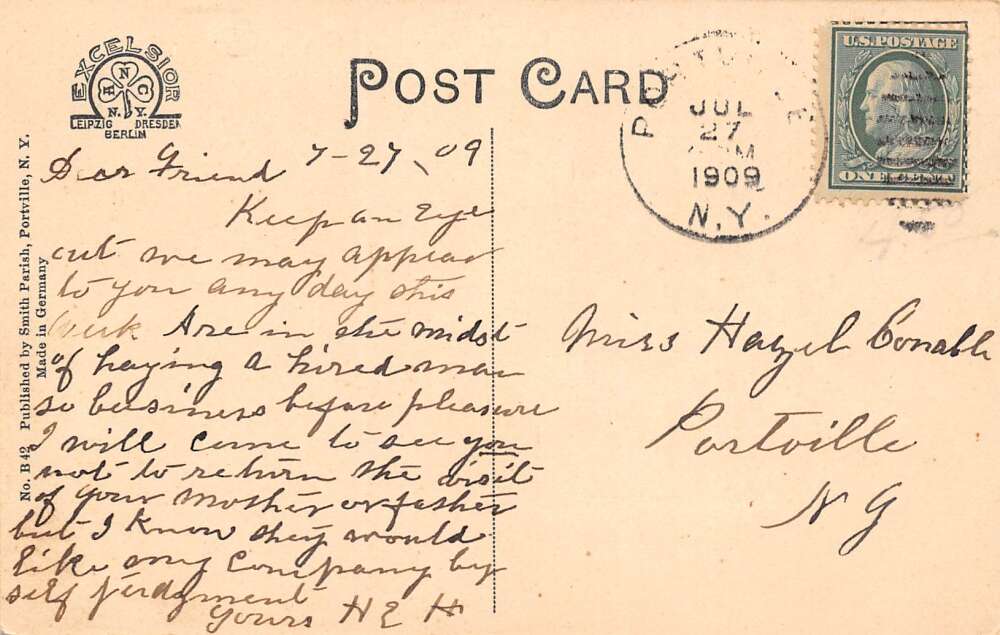 EXCELSIOR
A N C
N.Y.
LEIPZIG DRESDEN
BERLIN
POST CARD
JUL
27
M
1909
N.Y.
U.S. POSTAGE
ONE CENT
No. B42 Published by Smith Parish, Portville, N. Y.
Made in Germany
7-27, 09
Dear Friend
Keep an Eye
out we may appear
to you any day this
week Are in the midst
of haying & hired man
so business before pleasure
I will come to see you
not to return the visit
of your mother or father
but I know they would
like my company by
self judgment
Yours H E H
Miss Hazel Conable
Portville
N Y